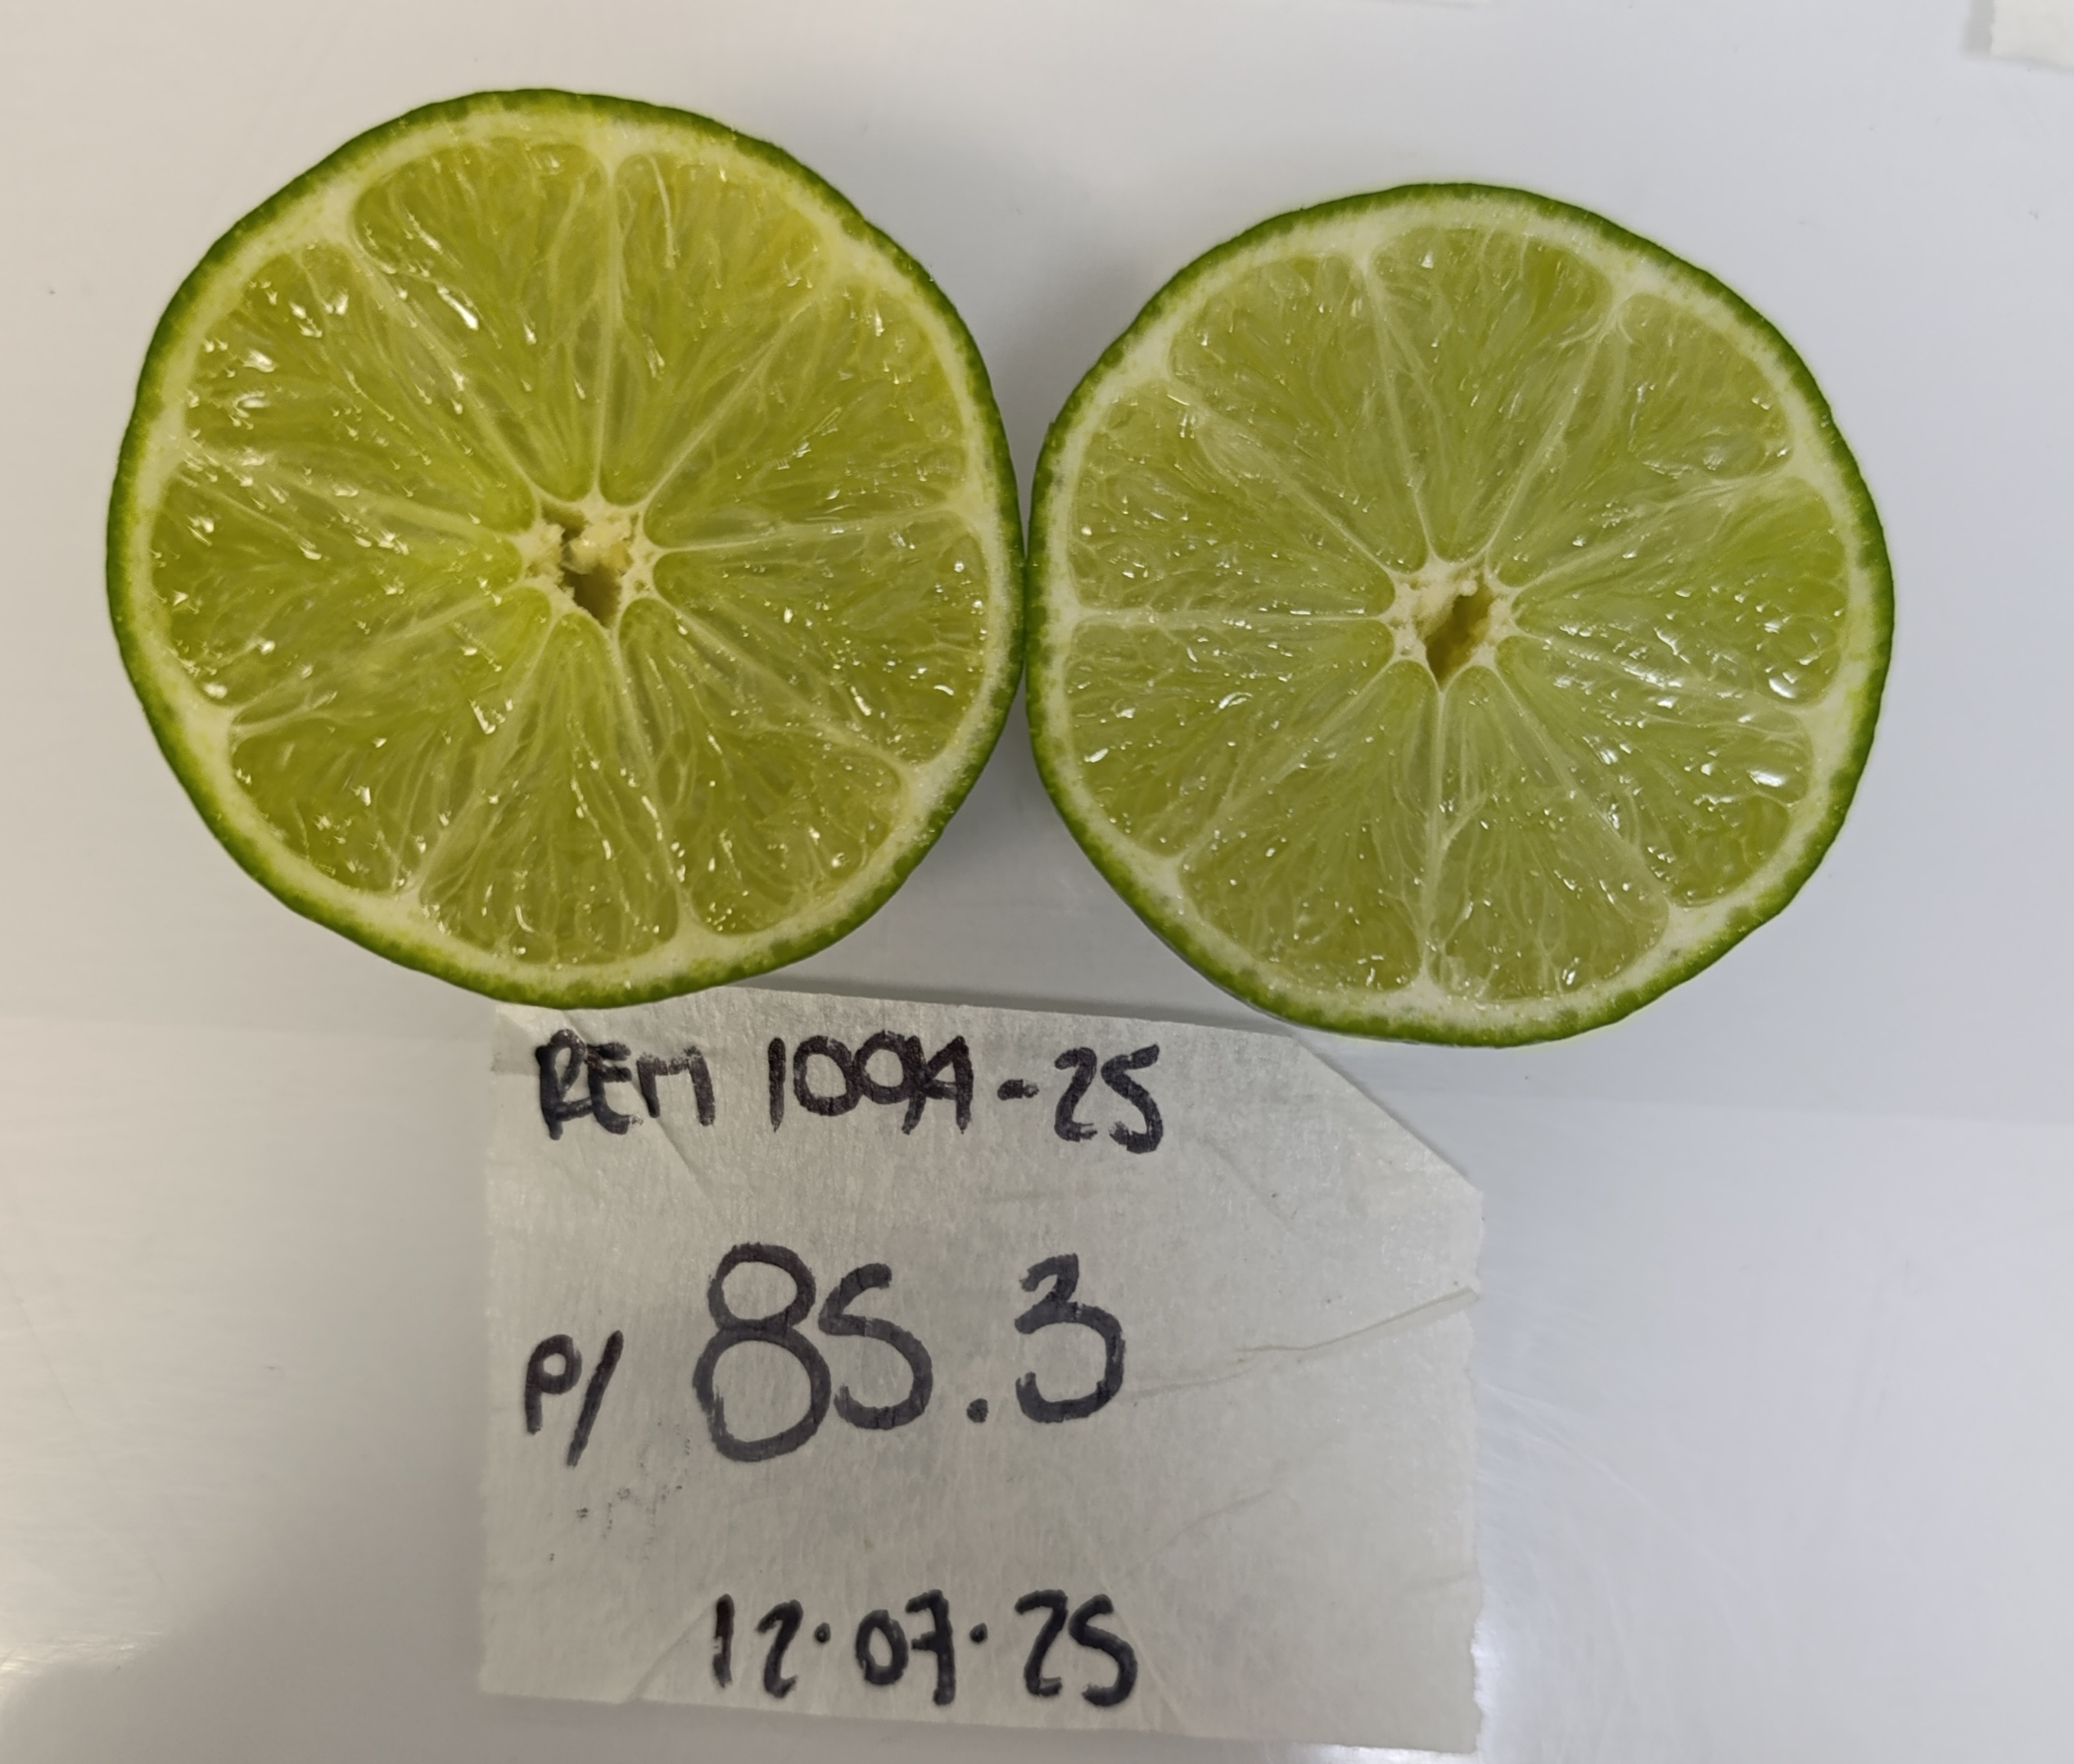 REM 1009A-25
P/ 85.3
12.07.25